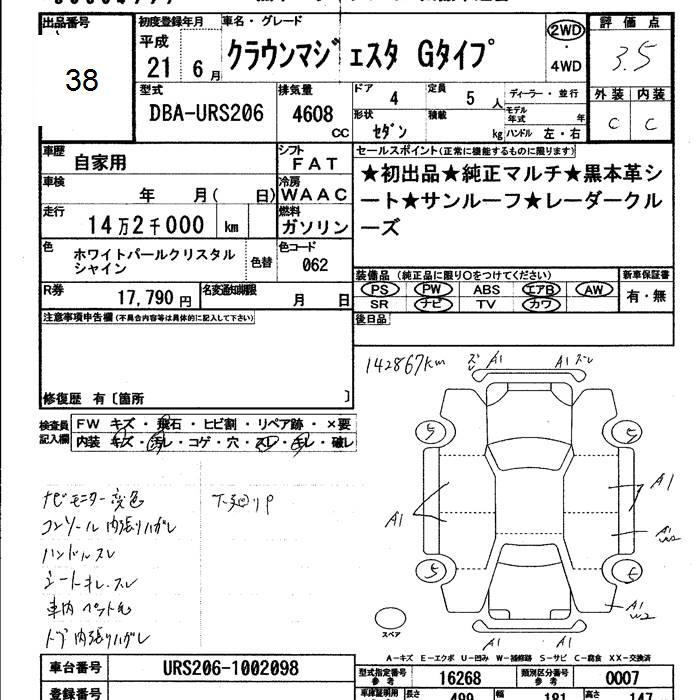 出品番号
38
初度登録年月
平成
21 6 月
車名・グレード
クラウンマジェスタ Gタイプ
2WD
・
4WD
評価点
3.5
外装 内装
C C
型式
DBA-URS206
排気量
4608
CC
ドア 4
定員 5 人
形状 セダン
積載 kg
ディーラー・並行
モデル年式 年
ハンドル 左・右
車歴 自家用
シフト FAT
車検 年 月( 日)
冷房 WAAC
走行 14万2千000 km
燃料 ガソリン
色 ホワイトパールクリスタル
シャイン
色替
色コード 062
R券 17,790円
名変通知期限 月 日
セールスポイント(正常に機能するものに限ります)
★初出品★純正マルチ★黒本革シ
ート★サンルーフ★レーダークル
ーズ
装備品 (純正品に限り○をつけてください)
PS PW ABS エアB AW
SR ナビ TV カワ
新車保証書
有・無
後日品
注意事項申告欄(不具合内容等は具体的に記入して下さい)
修復歴 有〔箇所 〕
検査員
記入欄
FW キズ・飛石・ヒビ割・リペア跡・×要
内装 キズ・汚レ・コゲ・穴・スレ・キレ・破レ
142867km
ズレ A1 A1 ズレ
5 5
A1 A1
A1
W2
5 5
A1
W2
A1 A1
スペア
ナビモニター変色
コンソール内張りハガレ
ハンドルスレ
シートキレ・スレ
車内ペット毛
トア内張りハガレ
下廻りP
A-キズ E-エクボ U-凹み W-補修跡 S-サビ C-腐食 XX-交換済
車台番号 URS206-1002098
型式指定番号
参考
16268
類別区分番号
参考
0007
登録番号
長さ 499 幅 181 高さ 147